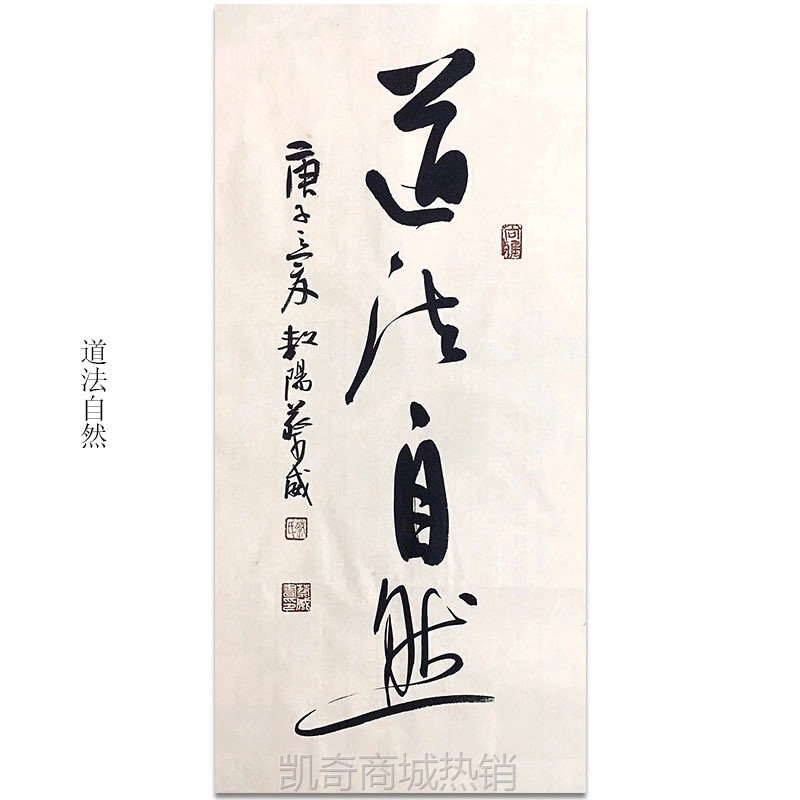 道法自然
庚子之夏 邵陽蔡威
道法自然
凯奇商城热销